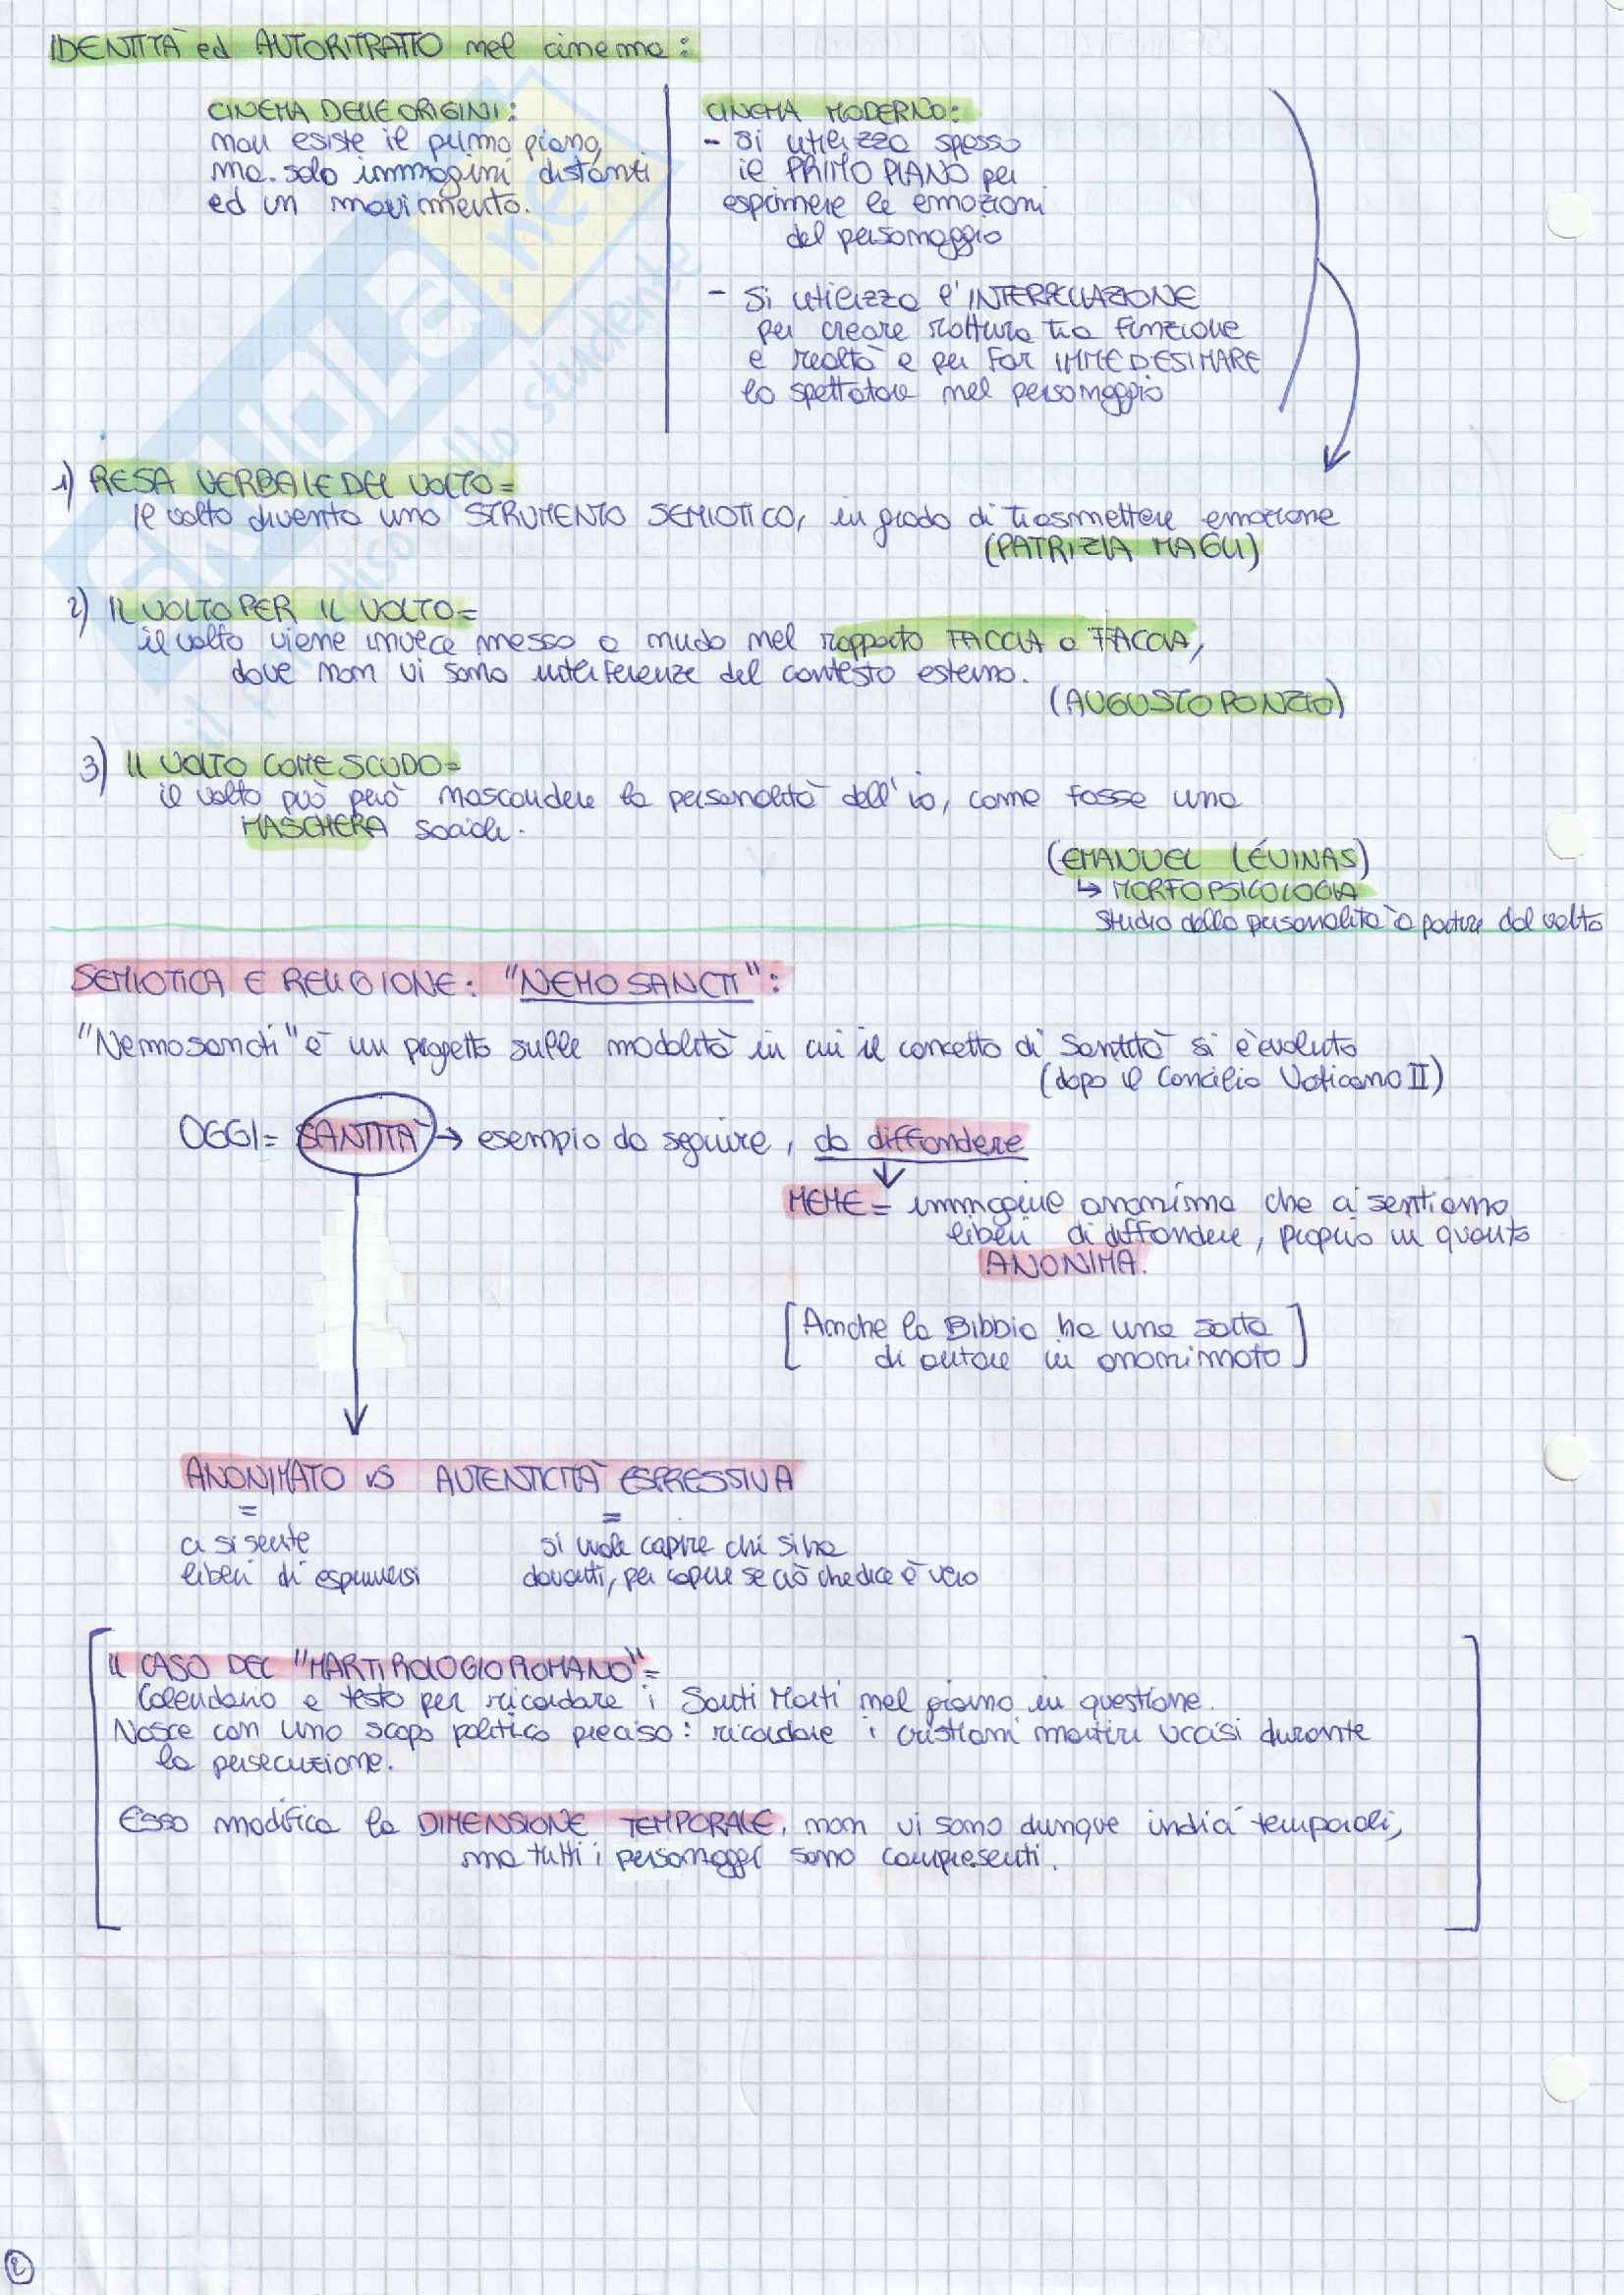 IDENTITÀ ed AUTORITRATTO nel cinema:
CINEMA DELLE ORIGINI:
non esiste il primo piano,
ma solo immagini distanti
ed in movimento.
CINEMA MODERNO:
- si utilizza spesso
il PRIMO PIANO per
esprimere le emozioni
del personaggio
- Si utilizza l'INTERPELLAZIONE
per creare rottura tra finzione
e realtà e per far IMMEDESIMARE
lo spettatore nel personaggio
1) RESA VERBALE DEL VOLTO=
il volto diventa uno STRUMENTO SEMIOTICO, in grado di trasmettere emozione
(PATRIZIA MAGLI)
2) IL VOLTO PER IL VOLTO=
il volto viene invece messo a nudo nel rapporto FACCIA a FACCIA,
dove non vi sono interferenze del contesto esterno.
(AUGUSTO PONZIO)
3) IL VOLTO COME SCUDO=
il volto può però nascondere la personalità dell'io, come fosse una
MASCHERA sociale.
(EMANUEL LÉVINAS)
↳ MORFOPSICOLOGIA
studio della personalità a partire dal volto
SEMIOTICA E RELIGIONE: "NEMO SANCTI":
"Nemosancti" è un progetto sulle modalità in cui il concetto di Santità si è evoluto
(dopo il Concilio Vaticano II)
OGGI= SANTITÀ → esempio da seguire, da diffondere
MEME = immagine anonima che ci sentiamo
liberi di diffondere, proprio in quanto
ANONIMA.
[Anche la Bibbia ha una sorta
di autore in anonimato]
ANONIMATO vs AUTENTICITÀ ESPRESSIVA
= =
ci si sente si vuole capire chi si ha
liberi di esprimersi davanti, per capire se ciò che dice è vero
IL CASO DEL "MARTIROLOGIO ROMANO"=
Calendario e testo per ricordare i Santi Morti nel giorno in questione.
Nasce con uno scopo politico preciso: ricordare i cristiani martiri uccisi durante
la persecuzione.
Esso modifica la DIMENSIONE TEMPORALE, non vi sono dunque indici temporali,
ma tutti i personaggi sono compresenti.
2